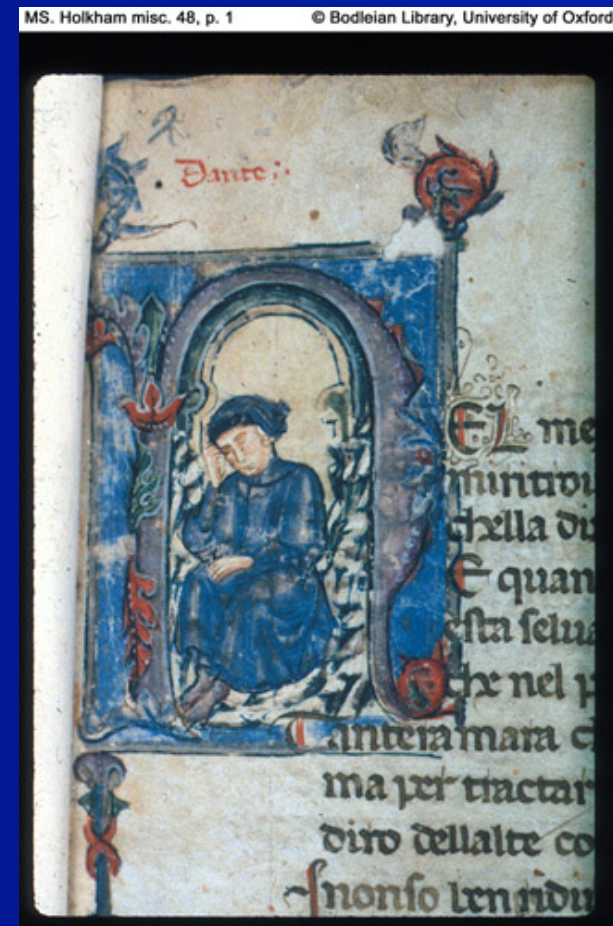 MS. Holkham misc. 48, p. 1 © Bodleian Library, University of Oxford
Dante
EL me
miritrou
chella di
E quan
esta selua
che nel p
Tantera mara c
ma per tractar
diro dellalte co
I nonso ben ridu